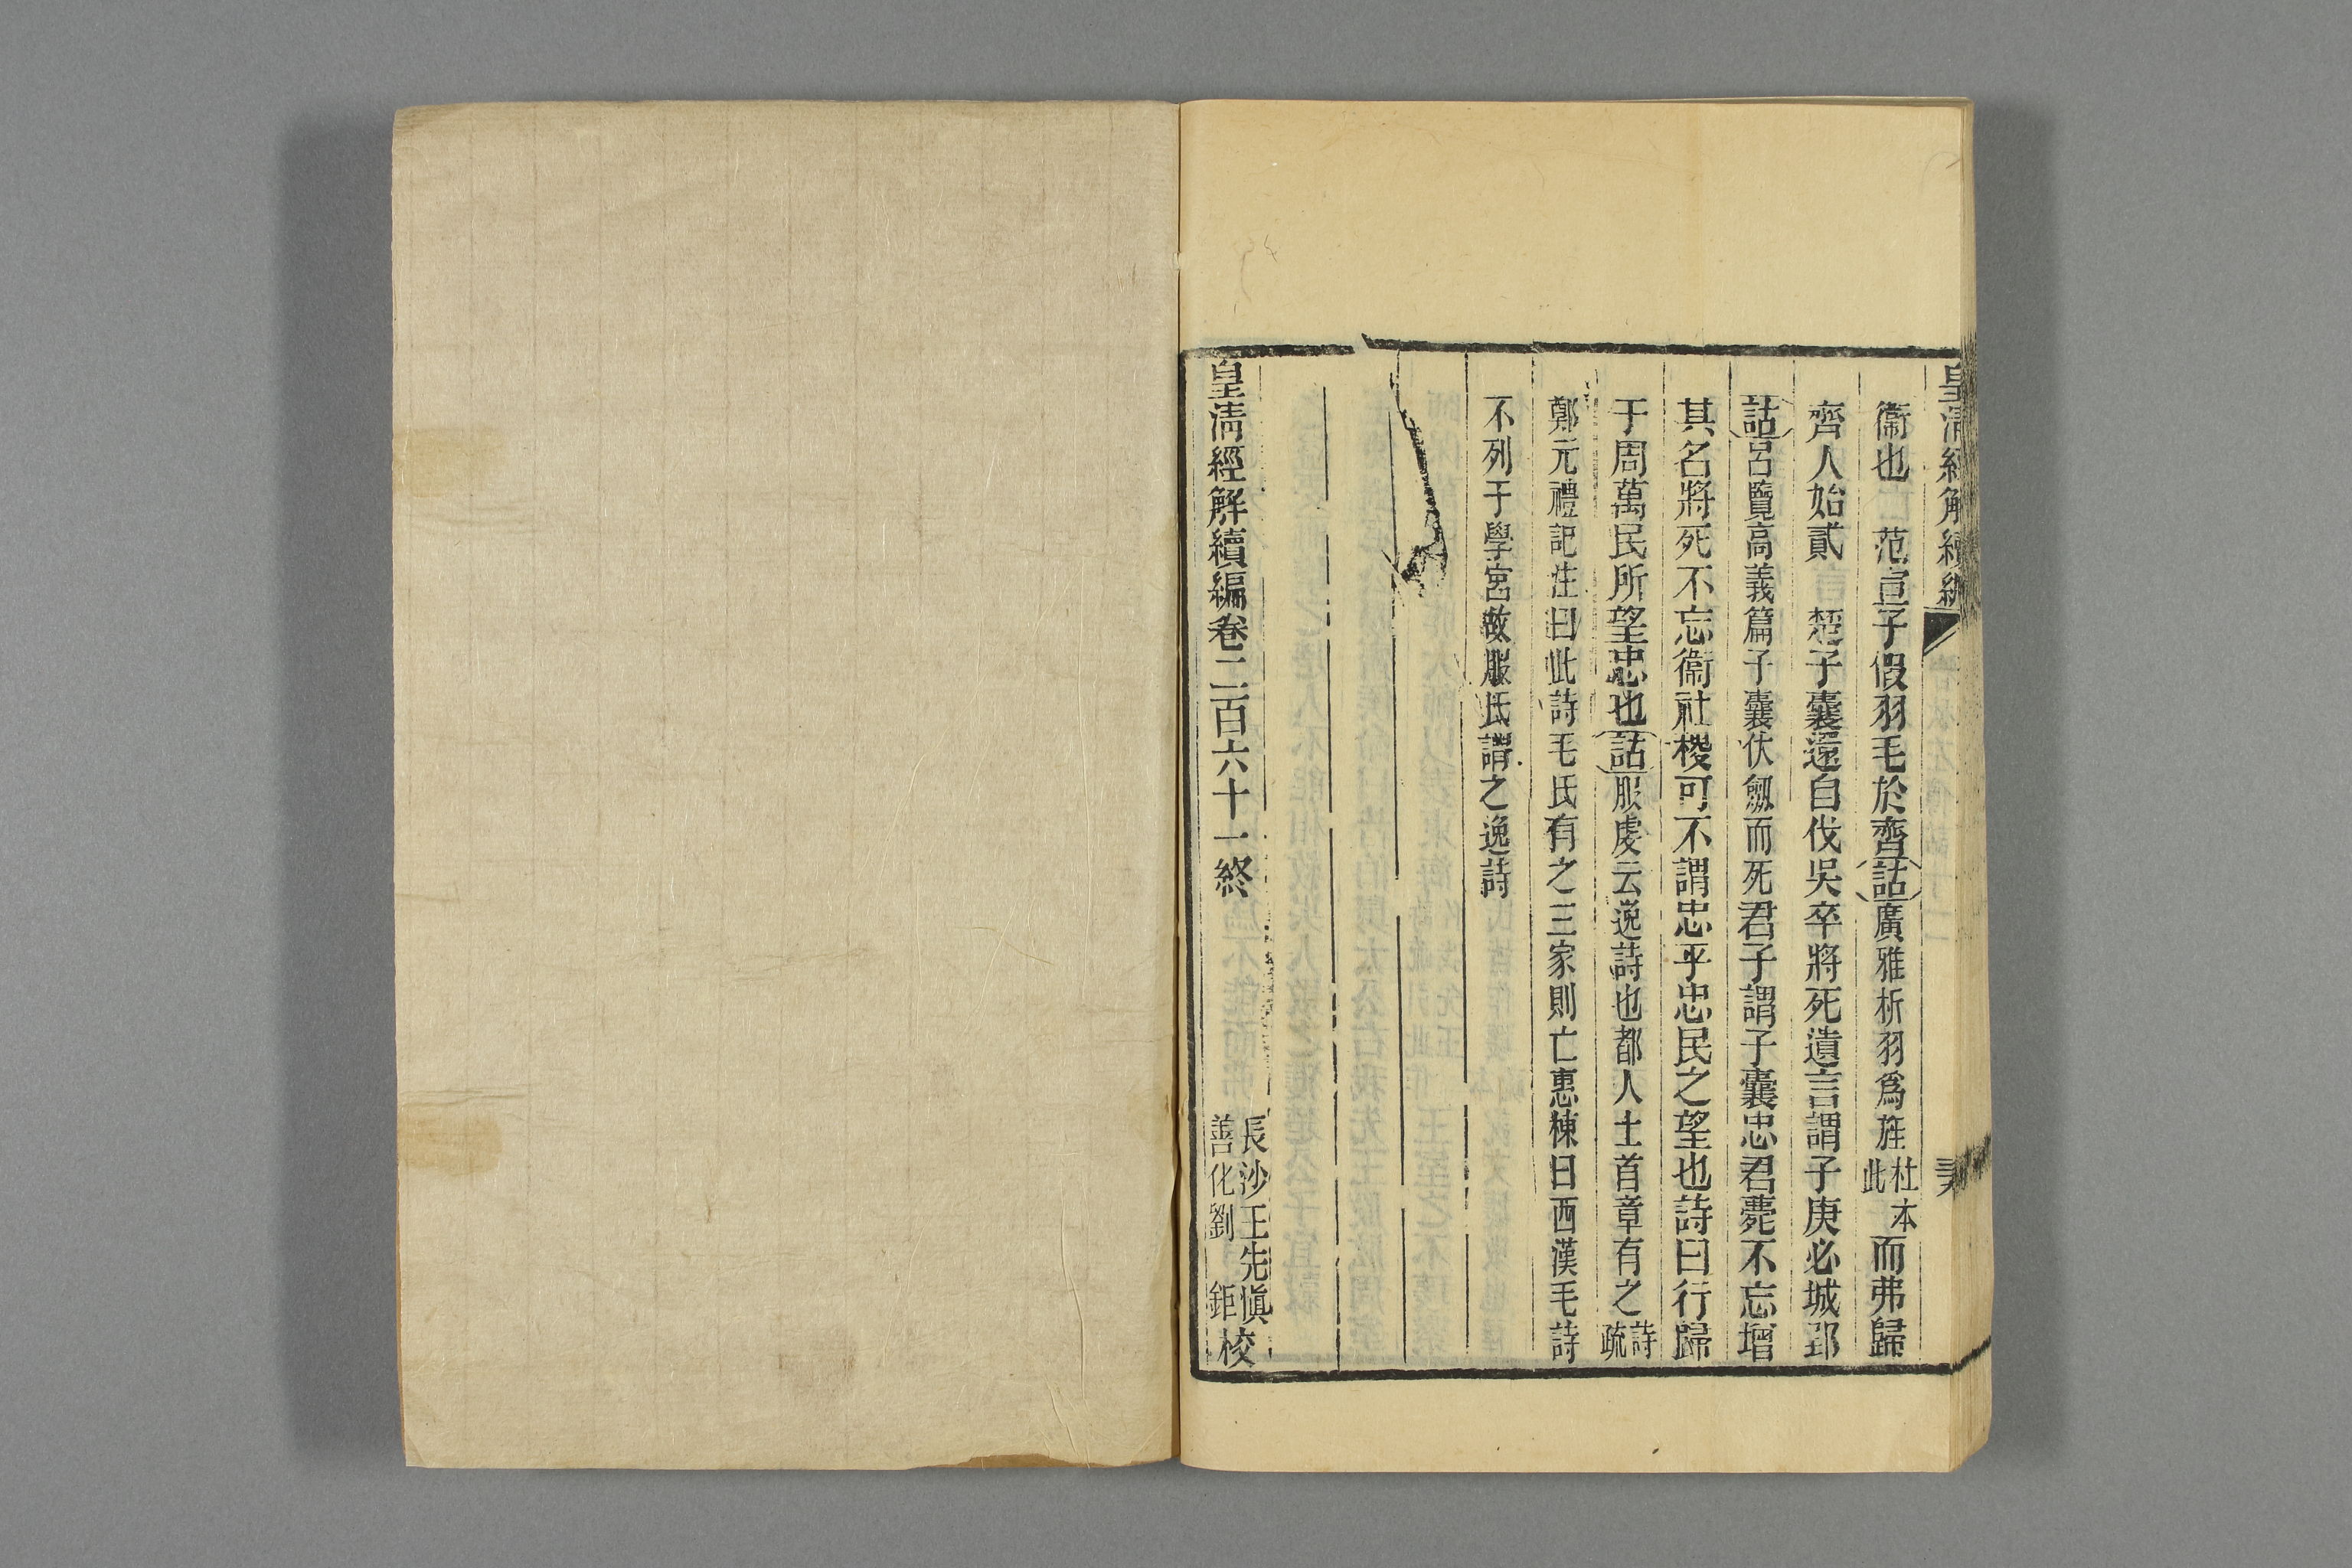 皇清經解續編
衞也　范宣子假羽毛於齊詁廣雅析羽爲旌杜本此而弗歸
齊人始貳　楚子囊還自伐吳卒將死遺言謂子庚必城郢
詁呂覽高義篇子囊伏劔而死君子謂子囊忠君薨不忘增
其名將死不忘衞社稷可不謂忠乎忠民之望也詩曰行歸
于周萬民所望忠也詁服虔云逸詩也都人士首章有之詩疏
鄭元禮記注曰此詩毛氏有之三家則亡惠棟曰西漢毛詩
不列于學宮故服氏謂之逸詩
皇清經解續編卷二百六十一終
長沙王先愼
善化劉鉅校